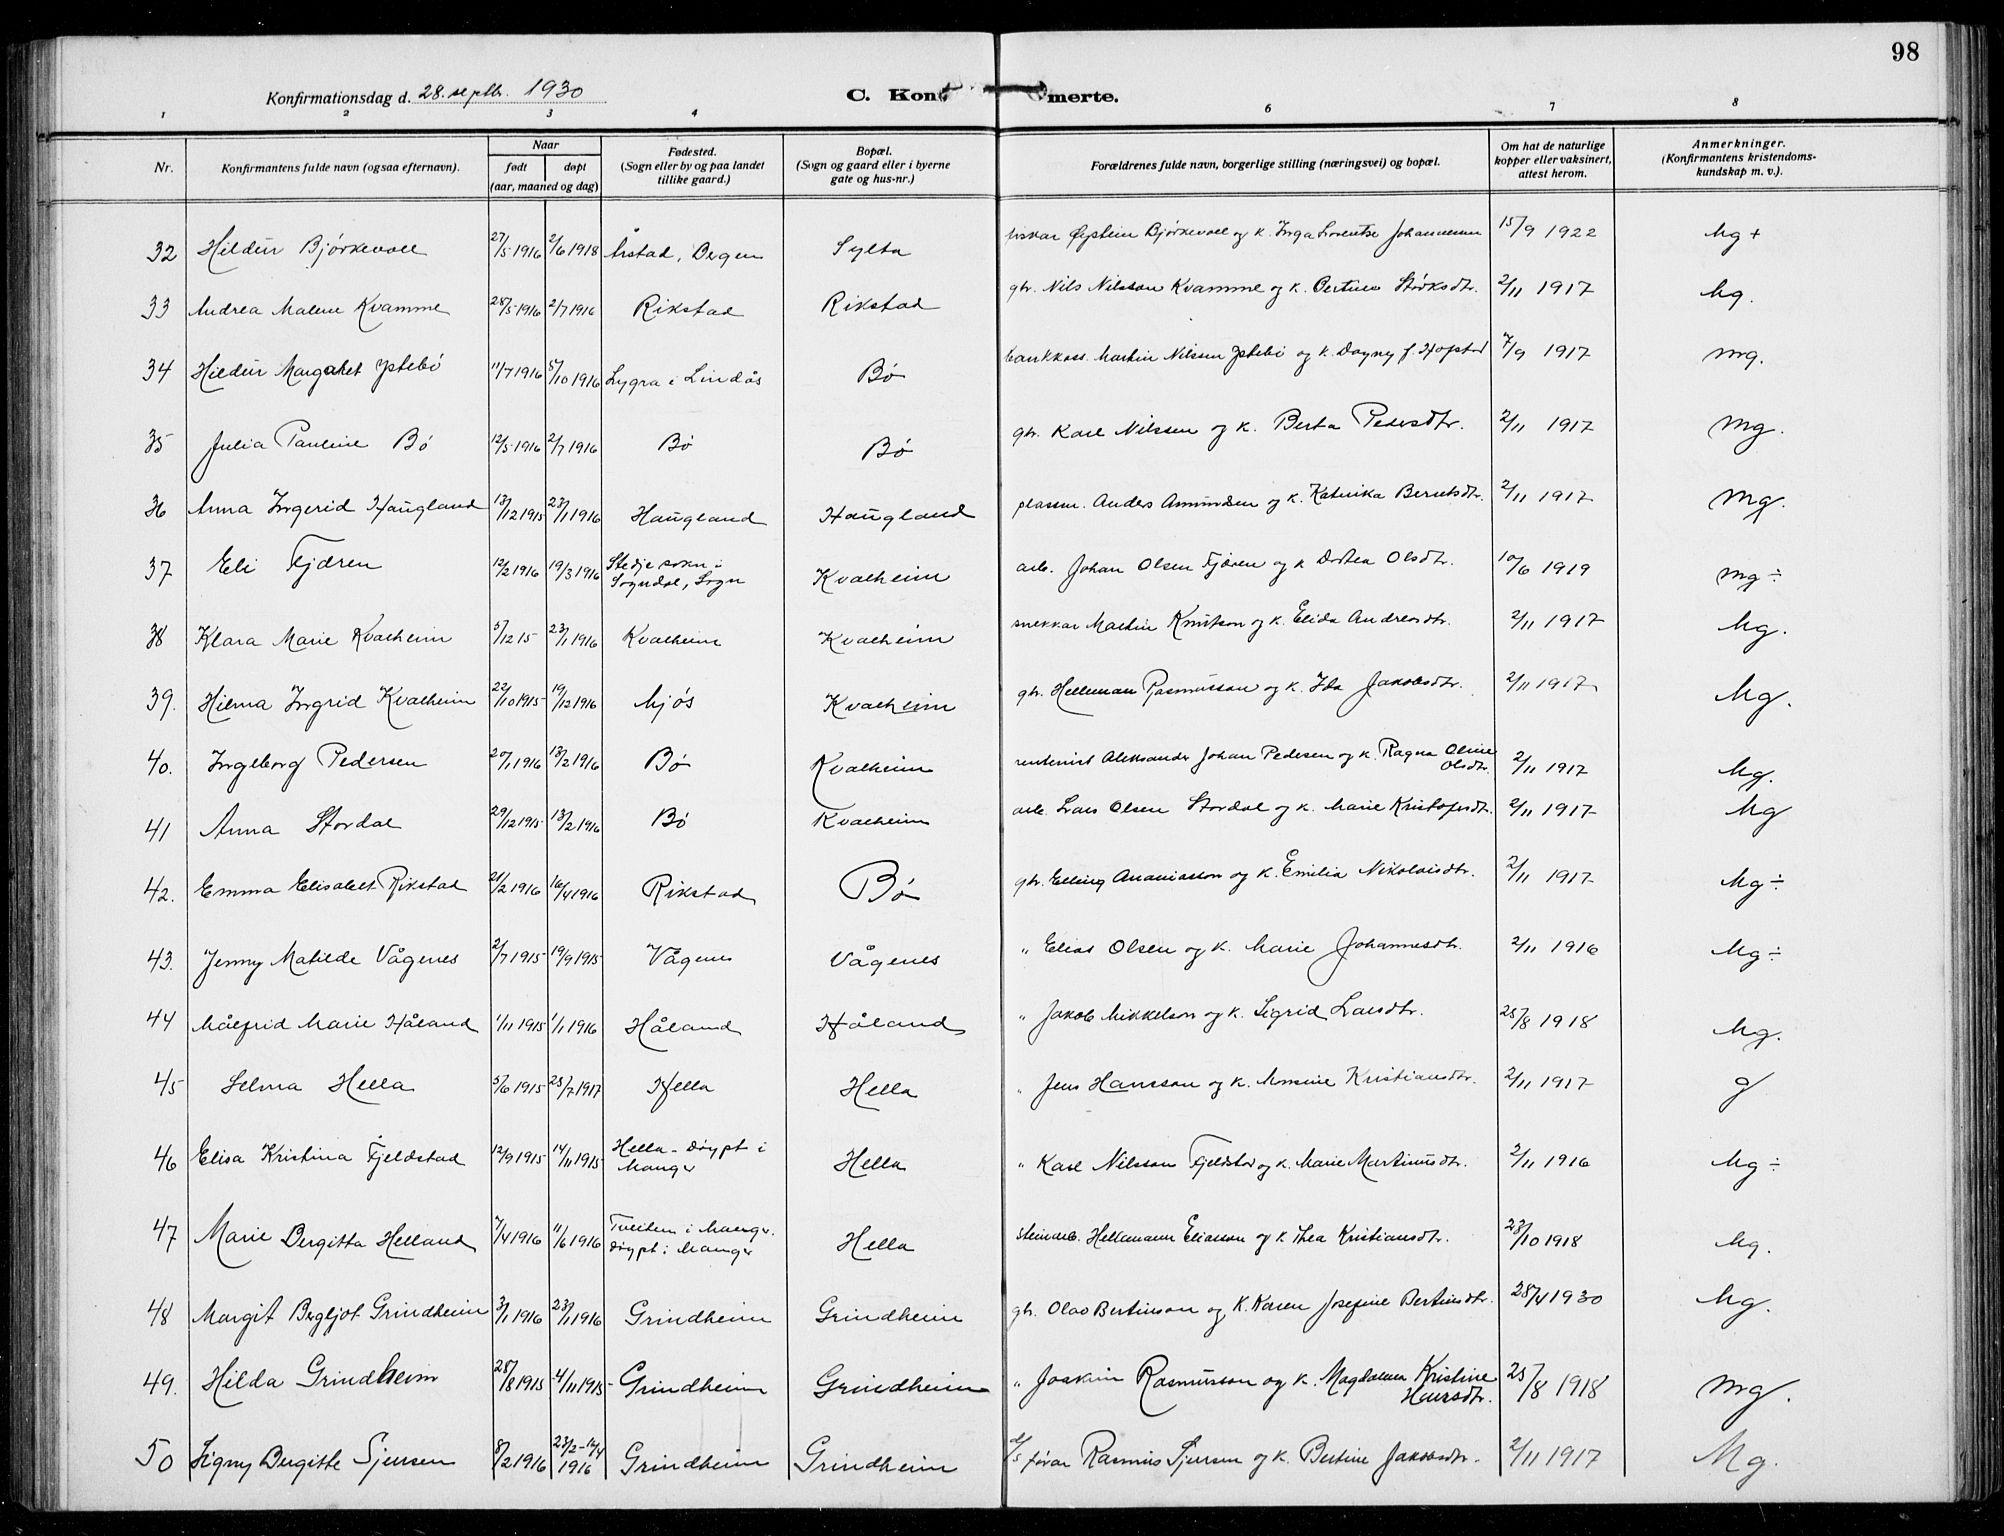 98
Konfirmationsdag d. 28. septbr. 1930
C. Kon merte.
1 2 3 4 6 7 8
Nr. Konfirmantens fulde navn (ogsaa efternavn). Naar født døpt (aar, maaned og dag) Fødested. (Sogn eller by og paa landet tillike gaard.) Bopæl. (Sogn og gaard eller i byerne gate og hus-nr.) Forældrenes fulde navn, borgerlige stilling (næringsvei) og bopæl. Om hat de naturlige kopper eller vaksinert, attest herom. Anmerkninger. (Konfirmantens kristendoms-kundskap m. v.).
32 Hildur Bjørkevoll 27/5 1916 2/6 1918 Årstad, Bergen Sylta fiskar Øystein Bjørkevoll og k. Inga Lorentse Johannessen 15/9 1922 Mg +
33 Andrea Malene Kvamme 28/5 1916 2/7 1916 Rikstad Rikstad gbr. Nils Nilsson Kvamme og k. Bertine Størksdtr. 2/11 1917 Mg.
34 Hildur Margaret Ystebø 11/7 1916 5/10 1916 Lygra i Lindås Bø bankkass. Martin Nilsen Ystebø og k. Dagny f. Hopstad 7/9 1917 mg.
35 Julia Pauline Bø 12/5 1916 2/7 1916 Bø Bø gbr. Karl Nilssen og k. Berta Pedersdtr. 2/11 1917 mg.
36 Anna Ingerid Haugland 13/12 1915 23/1 1916 Haugland Haugland plassm. Anders Amundsen og k. Katrika Berntsdtr. 2/11 1917 mg.
37 Eli Fjæren 12/2 1916 19/3 1916 Stedje sokn i Sogndal, Sogn Kvalheim arb. Johan Olsen Fjæren og k Dortea Olsdtr. 10/6 1919 mg ÷
38 Klara Marie Kvalheim 5/12 15 23/1 1916 Kvalheim Kvalheim snekkar Martin Knutson og k. Elida Andreasdtr. 2/11 1917 Mg.
39. Hilma Ingrid Kvalheim 22/10 1915 19/12 1916 Mjøs Kvalheim gbr. Helleman Rasmusson og k. Ida Jakobsdtr. 2/11 1917 Mg.
40. Ingeborg Pedersen 20/1 1916 13/2 1916 Bø Kvalheim rentenist Aleksander Johan Pedersen og k. Ragna Oline Olsdtr. 2/11 1917 Mg.
41 Anna Stordal 29/12 1915 13/2 1916 Bø Kvalheim arb. Lars Olsen Stordal og k. Marie Kristofersdtr. 2/11 1917 Mg
42. Emma Elisabet Rikstad 21/2 1916 16/4 1916 Rikstad Bø gbr. Elling Ananiasson og k. Emilia Nikolaisdtr. 2/11 1917 Mg ÷
43. Jenny Matilde Vågenes 2/7 1915 19/9 1915 Vågenes Vågenes " Elias Olsen og k. Marie Johannesdtr. 2/11 1916 Mg ÷
44 Målfrid Marie Håland 1/11 1915 1/1 1916 Håland Håland " Jakob Mikkelson og k. Sigrid Larsdtr. 25/8 1918 Mg.
45 Selma Hella 5/6 1915 23/7 1917 Hella Hella " Jens Hansson og k. Monsine Kristiansdtr. 2/11 1917 g
46 Elisa Kristina Fjeldstad 12/9 1915 14/11 1915 Hella - døypt i Manger Hella " Karl Nilsson Fjeldstad og k. Marie Martinusdtr. 2/11 1916 Mg ÷
47 Marie Bergitta Helland 7/4 1916 11/6 1916 Tveiten i Manger. døypt i Manger Hella steinarb. Hellemann Eliasson og k Thea Kristiansdtr. 23/10 1918 Mg.
48 Margit Bergljot Grindheim 3/1 1916 23/1 1916 Grindheim Grindheim gbr. Olao Bertinson og k. Karen Josefine Bertinsdtr. 28/4 1930 Mg.
49. Hilda Grindheim 28/8 1915 4/11 1915 Grindheim Grindheim " Joakim Rasmusson og k. Magdalena Kristine Hansdtr. 25/8 1918 mg.
50 Signy Bergitte Sjursen 8/2 1916 23/2-16/4 1916 Grindheim Grindheim d/s førar Rasmus Sjursen og k. Bertine Jakobsdtr. 2/11 1917 Mg.